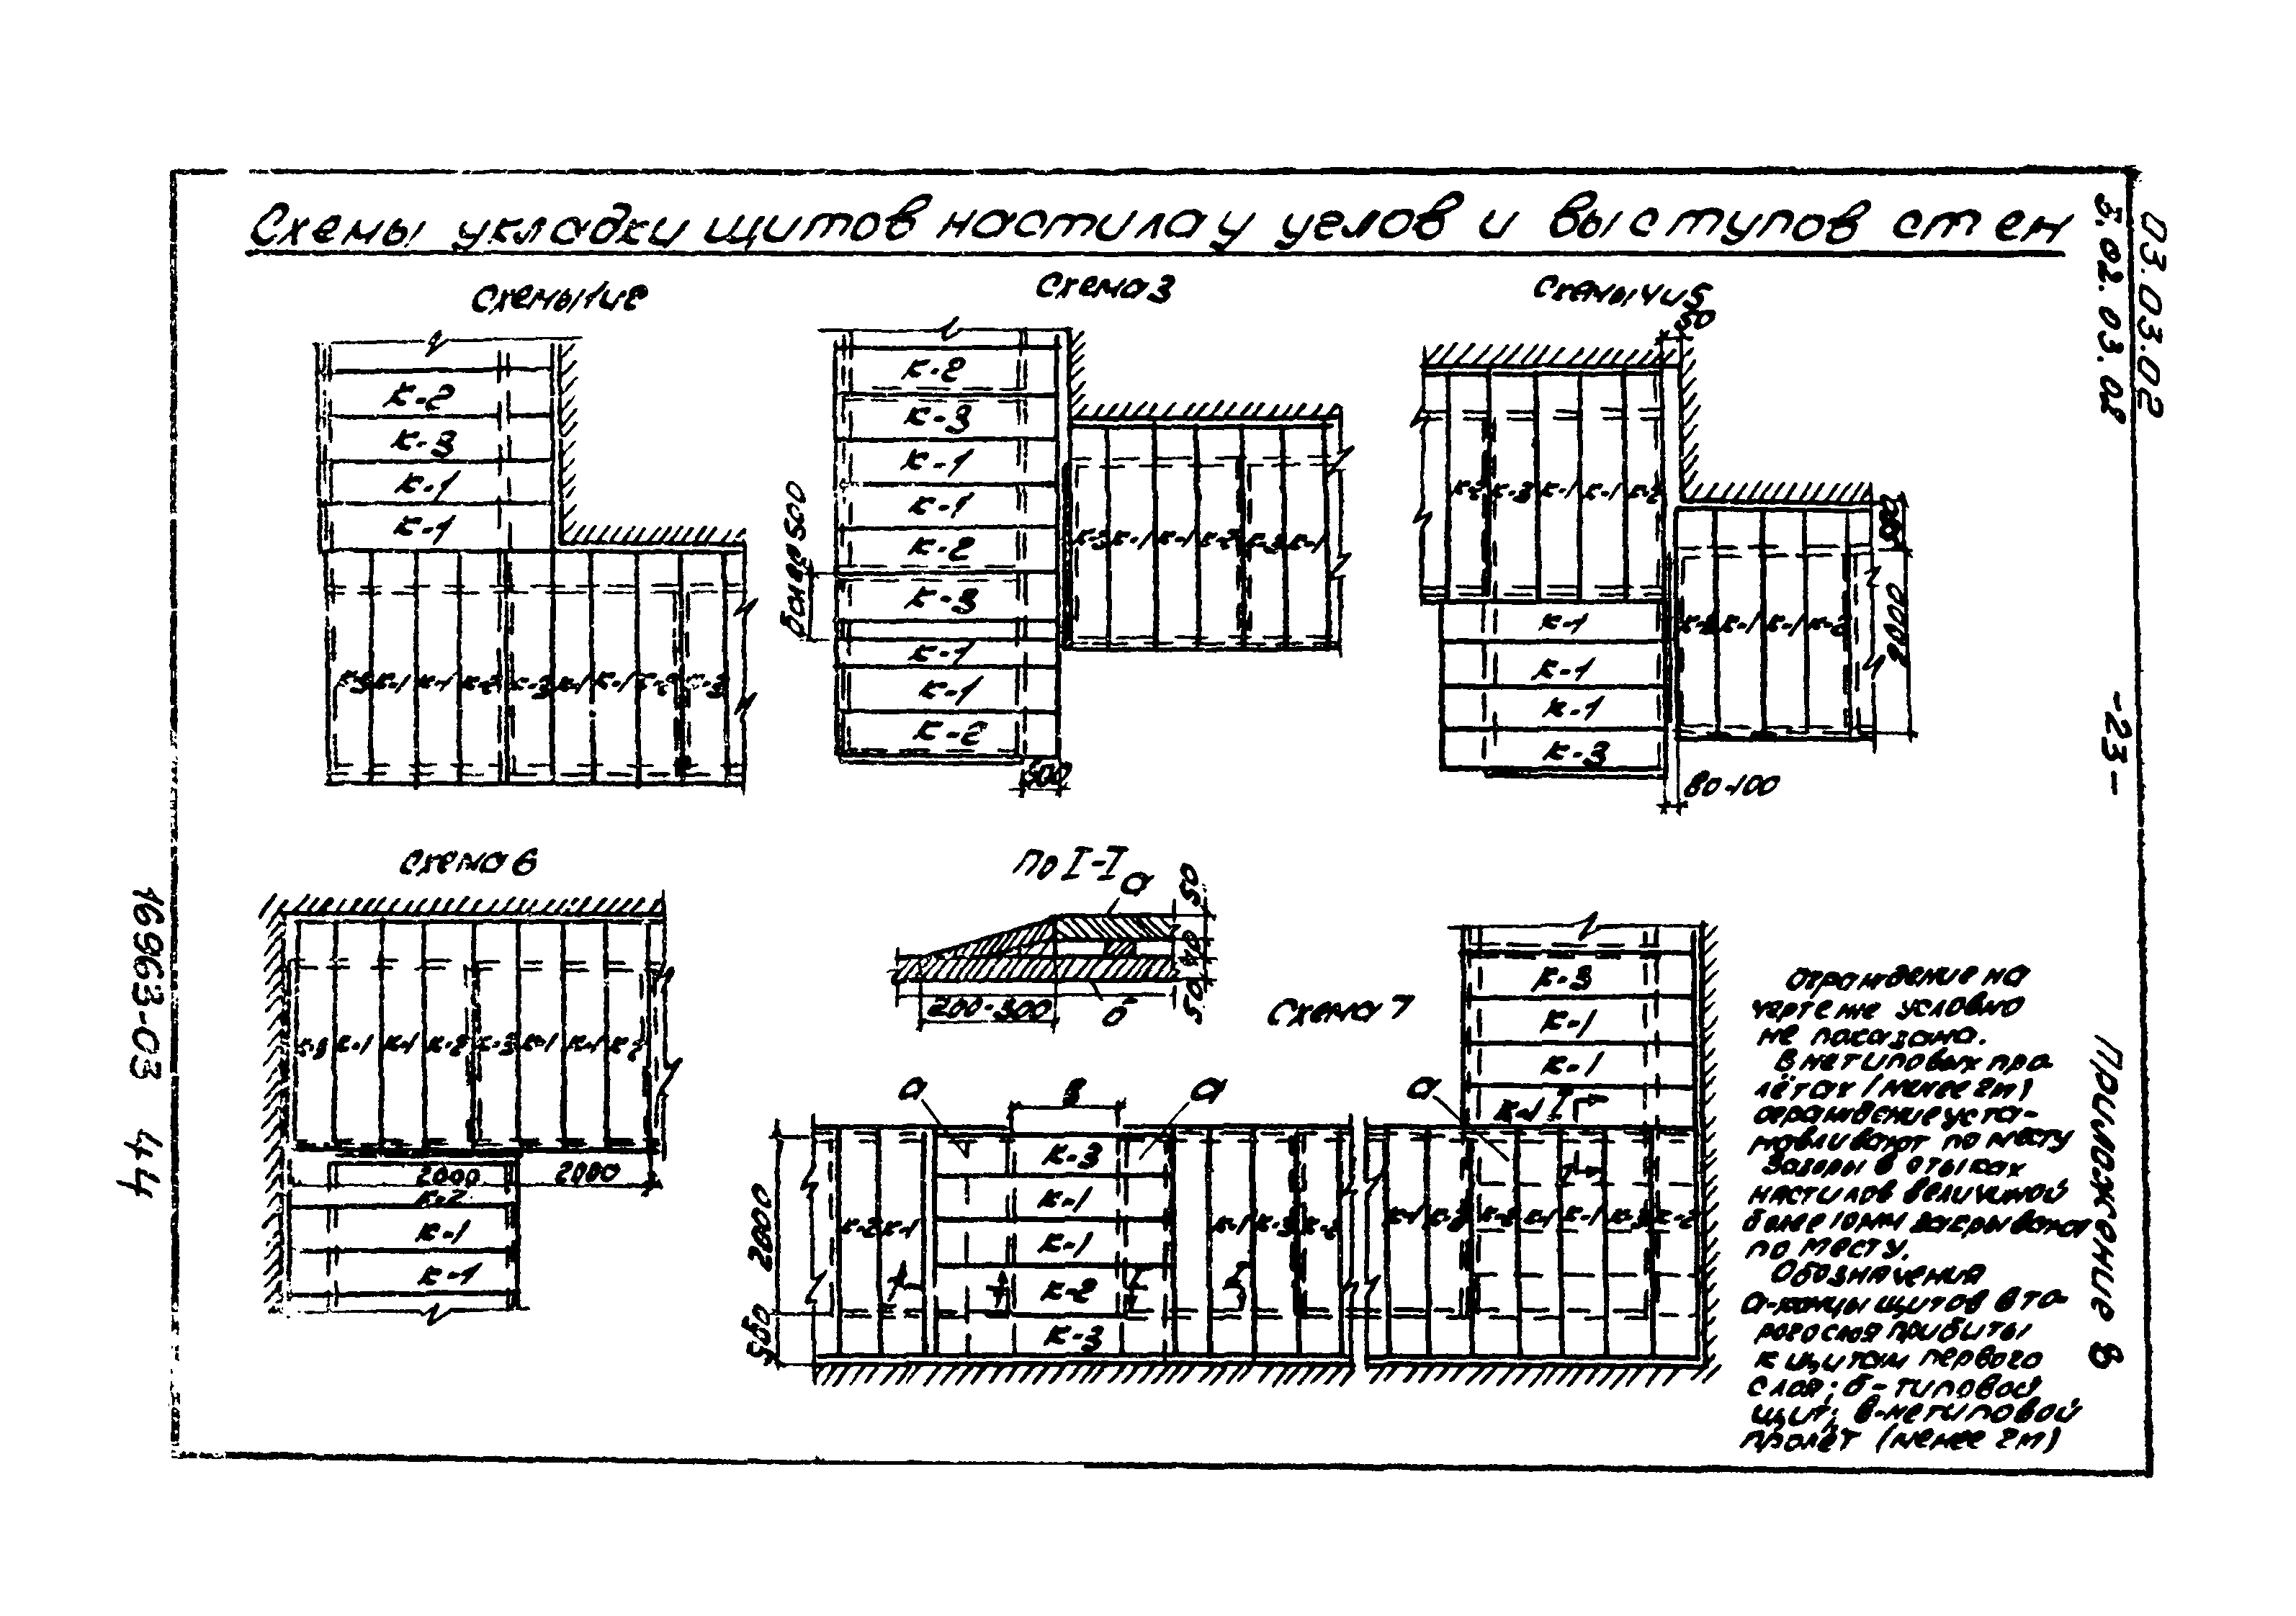 Схемы укладки щитов настила у углов и выступов стен
03.03.02
3.02.03.02
-23-
Приложение 8
16963-03 44
Схемы 1 и 2
К-2
К-3
К-1
К-1
К-3 К-1 К-1 К-2 К-3 К-1 К-1 К-2 К-3
Схема 3
К-2
К-3
К-1
К-1
К-2
К-3
К-1
К-1
К-2
Более 500
500
К-3 К-1 К-1 К-2 К-3 К-1
Схемы 4 и 5
50
К-2 К-3 К-1 К-1 К-2
К-1
К-1
К-1
К-3
К-3 К-1 К-1 К-2
2000
80-100
Схема 6
К-3 К-1 К-1 К-2 К-3 К-1 К-1 К-2
2000 2000
К-2
К-1
К-1
По I-I
а
50
50
200-300
б
Схема 7
К-3
К-1
К-1
К-1 I
I
а
в
а
а
К-3
К-1
К-1
К-2
К-3
К-2 К-1
К-1 К-3
2000
550
Ограждение на
чертеже условно
не показано.
В нетиповых про-
лётах (менее 2м)
ограждение уста-
новливают по месту
Зазоры в стыках
настилов величиной
более 10мм закрывают
по месту.
Обозначения
а-концы щитов вто-
рого слоя прибиты
к щитам первого
слоя; б-типовой
щит; в-нетиповой
пролёт (менее 2м)